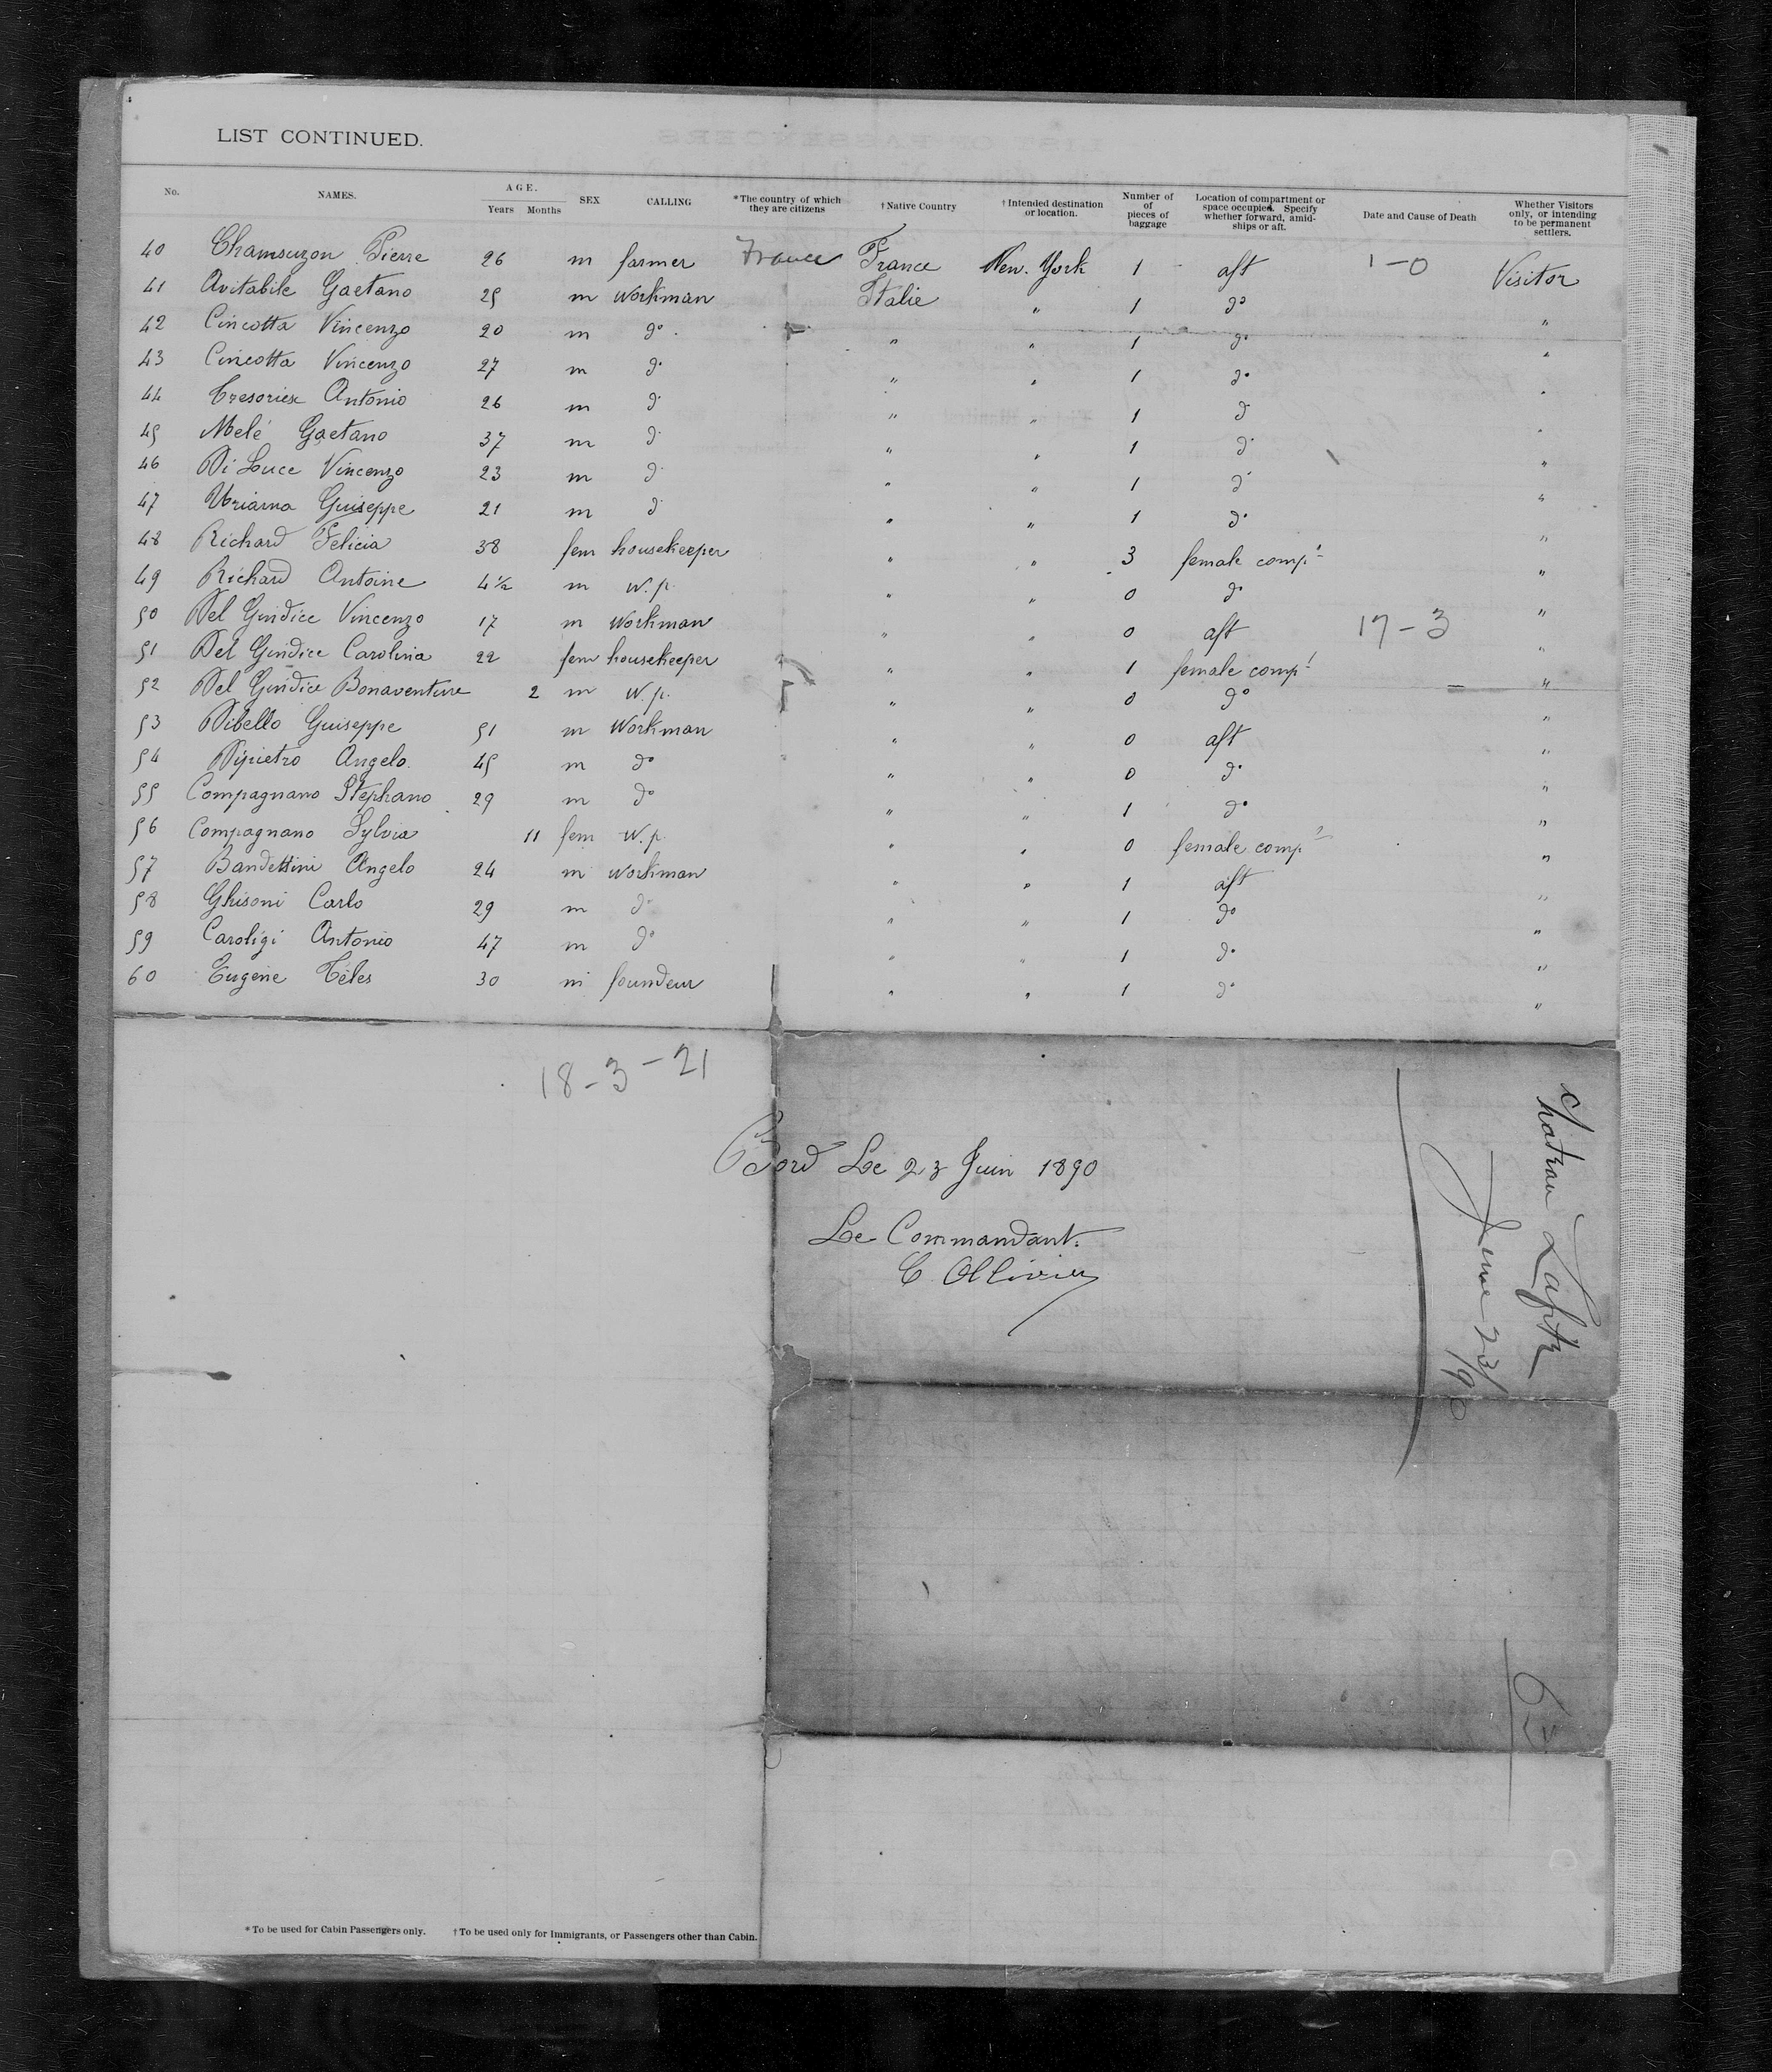 LIST CONTINUED.
No. NAMES. AGE. Years Months SEX CALLING *The country of which they are citizens †Native Country †Intended destination or location. Number of of pieces of baggage Location of compartment or space occupied. Specify whether forward, amidships or aft. Date and Cause of Death Whether Visitors only, or intending to be permanent settlers.
40 Chamsuzon Pierre 26 m farmer France France New. York 1 aft 1-0 Visitor
41 Avitabile Gaetano 25 m Workman Italie " 1 do "
42 Cincotta Vincenzo 20 m do " " 1 do "
43 Cincotta Vincenzo 27 m do " " 1 do "
44 Antonio 26 m do " " 1 do "
45 Melé Gaetano 37 m do " " 1 do "
46 Di Luce Vincenzo 23 m do " " 1 do "
47 Guiseppe 21 m do " " 1 do "
48 Richard Felicia 38 fem housekeeper " " 3 female compt "
49 Richard Antoine 4½ m w.p. " " 0 do "
50 Del Guidice Vincenzo 17 m Workman " " 0 aft 17-3 "
51 Del Guidice Carolina 22 fem housekeeper " " 1 female compt "
52 Del Guidice Bonaventure 2 m w.p. " " 0 do "
53 Dibello Guiseppe 51 m Workman " " 0 aft "
54 Dipietro Angelo. 45 m do " " 0 do "
55 Compagnano Stephano 29 m do " " 1 do "
56 Compagnano Sylvia 11 fem w.p. " " 0 female compt "
57 Bandettini Angelo 24 m workman " " 1 aft "
58 Ghisoni Carlo 29 m do " " 1 do "
59 Caroligi Antonio 47 m do " " 1 do "
60 Eugène Téles 30 m foundeur " " 1 do "
18-3-21
Bord Le 23 Juin 1890
Le Commandant.
C Ollivier
Chateau Lafite
June 23/90
63
*To be used for Cabin Passengers only. †To be used only for Immigrants, or Passengers other than Cabin.